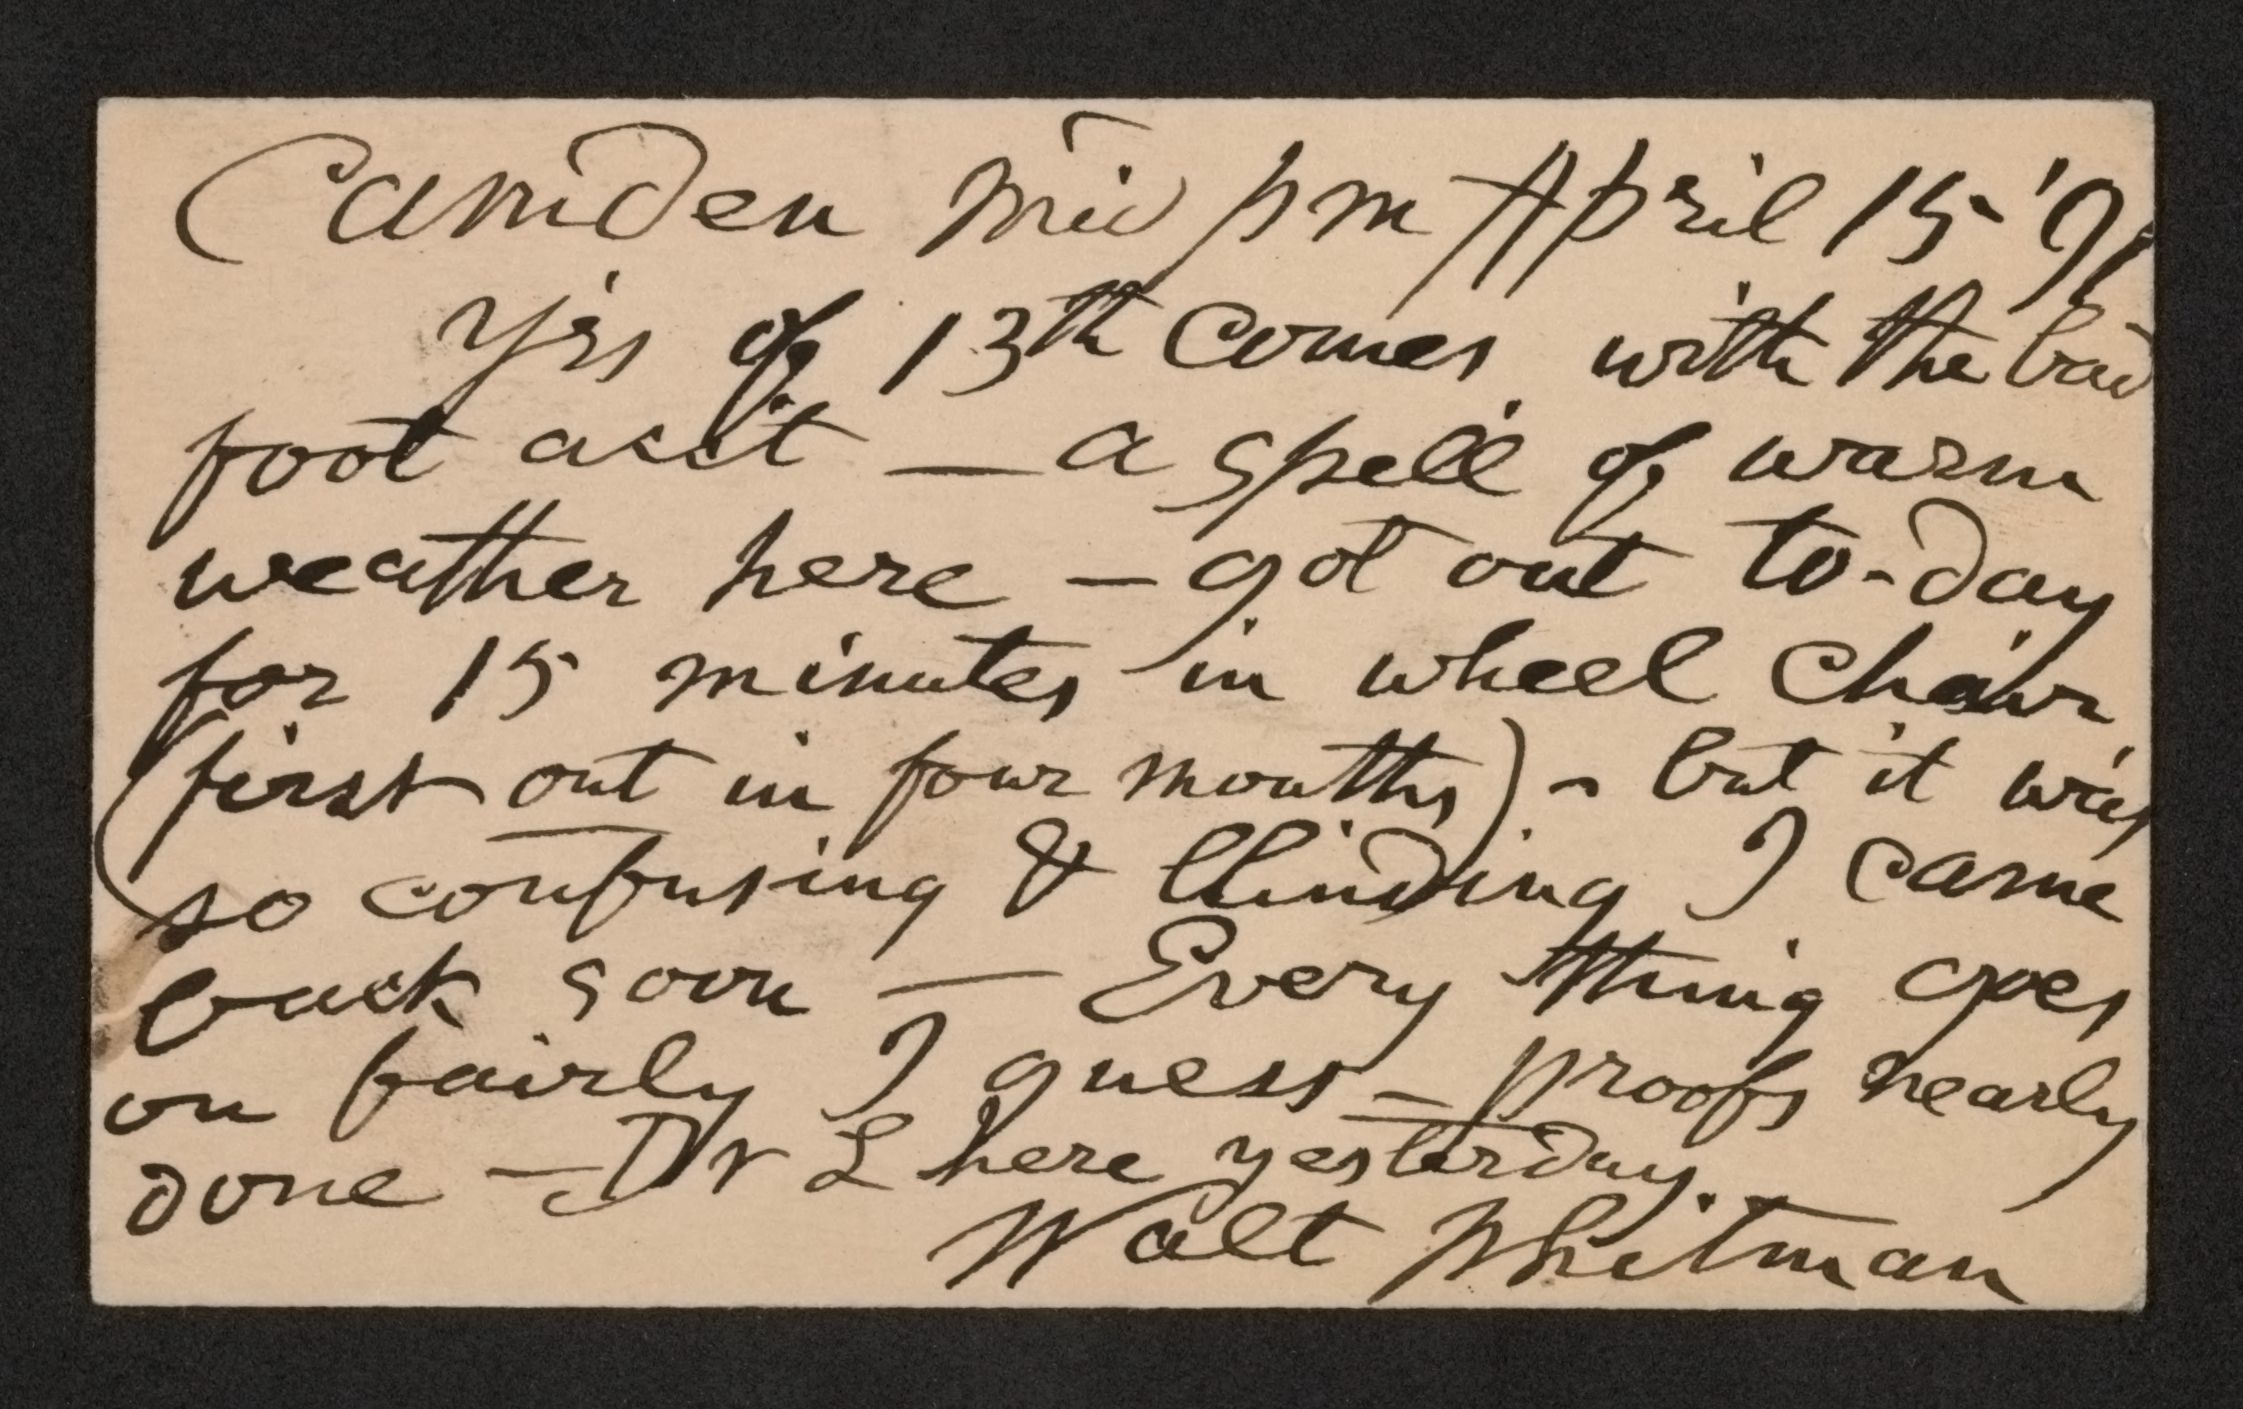 Camden Mid pm April 15 '91
Y'rs of 13th comes with the bad
foot acc't — a spell of warm
weather here — got out to-day
for 15 minutes in wheel chair
(first out in four months) - but it was
so confusing & blinding I came
back soon — Every thing goes
on fairly I guess — proofs nearly
done — Dr L here yesterday.
Walt Whitman